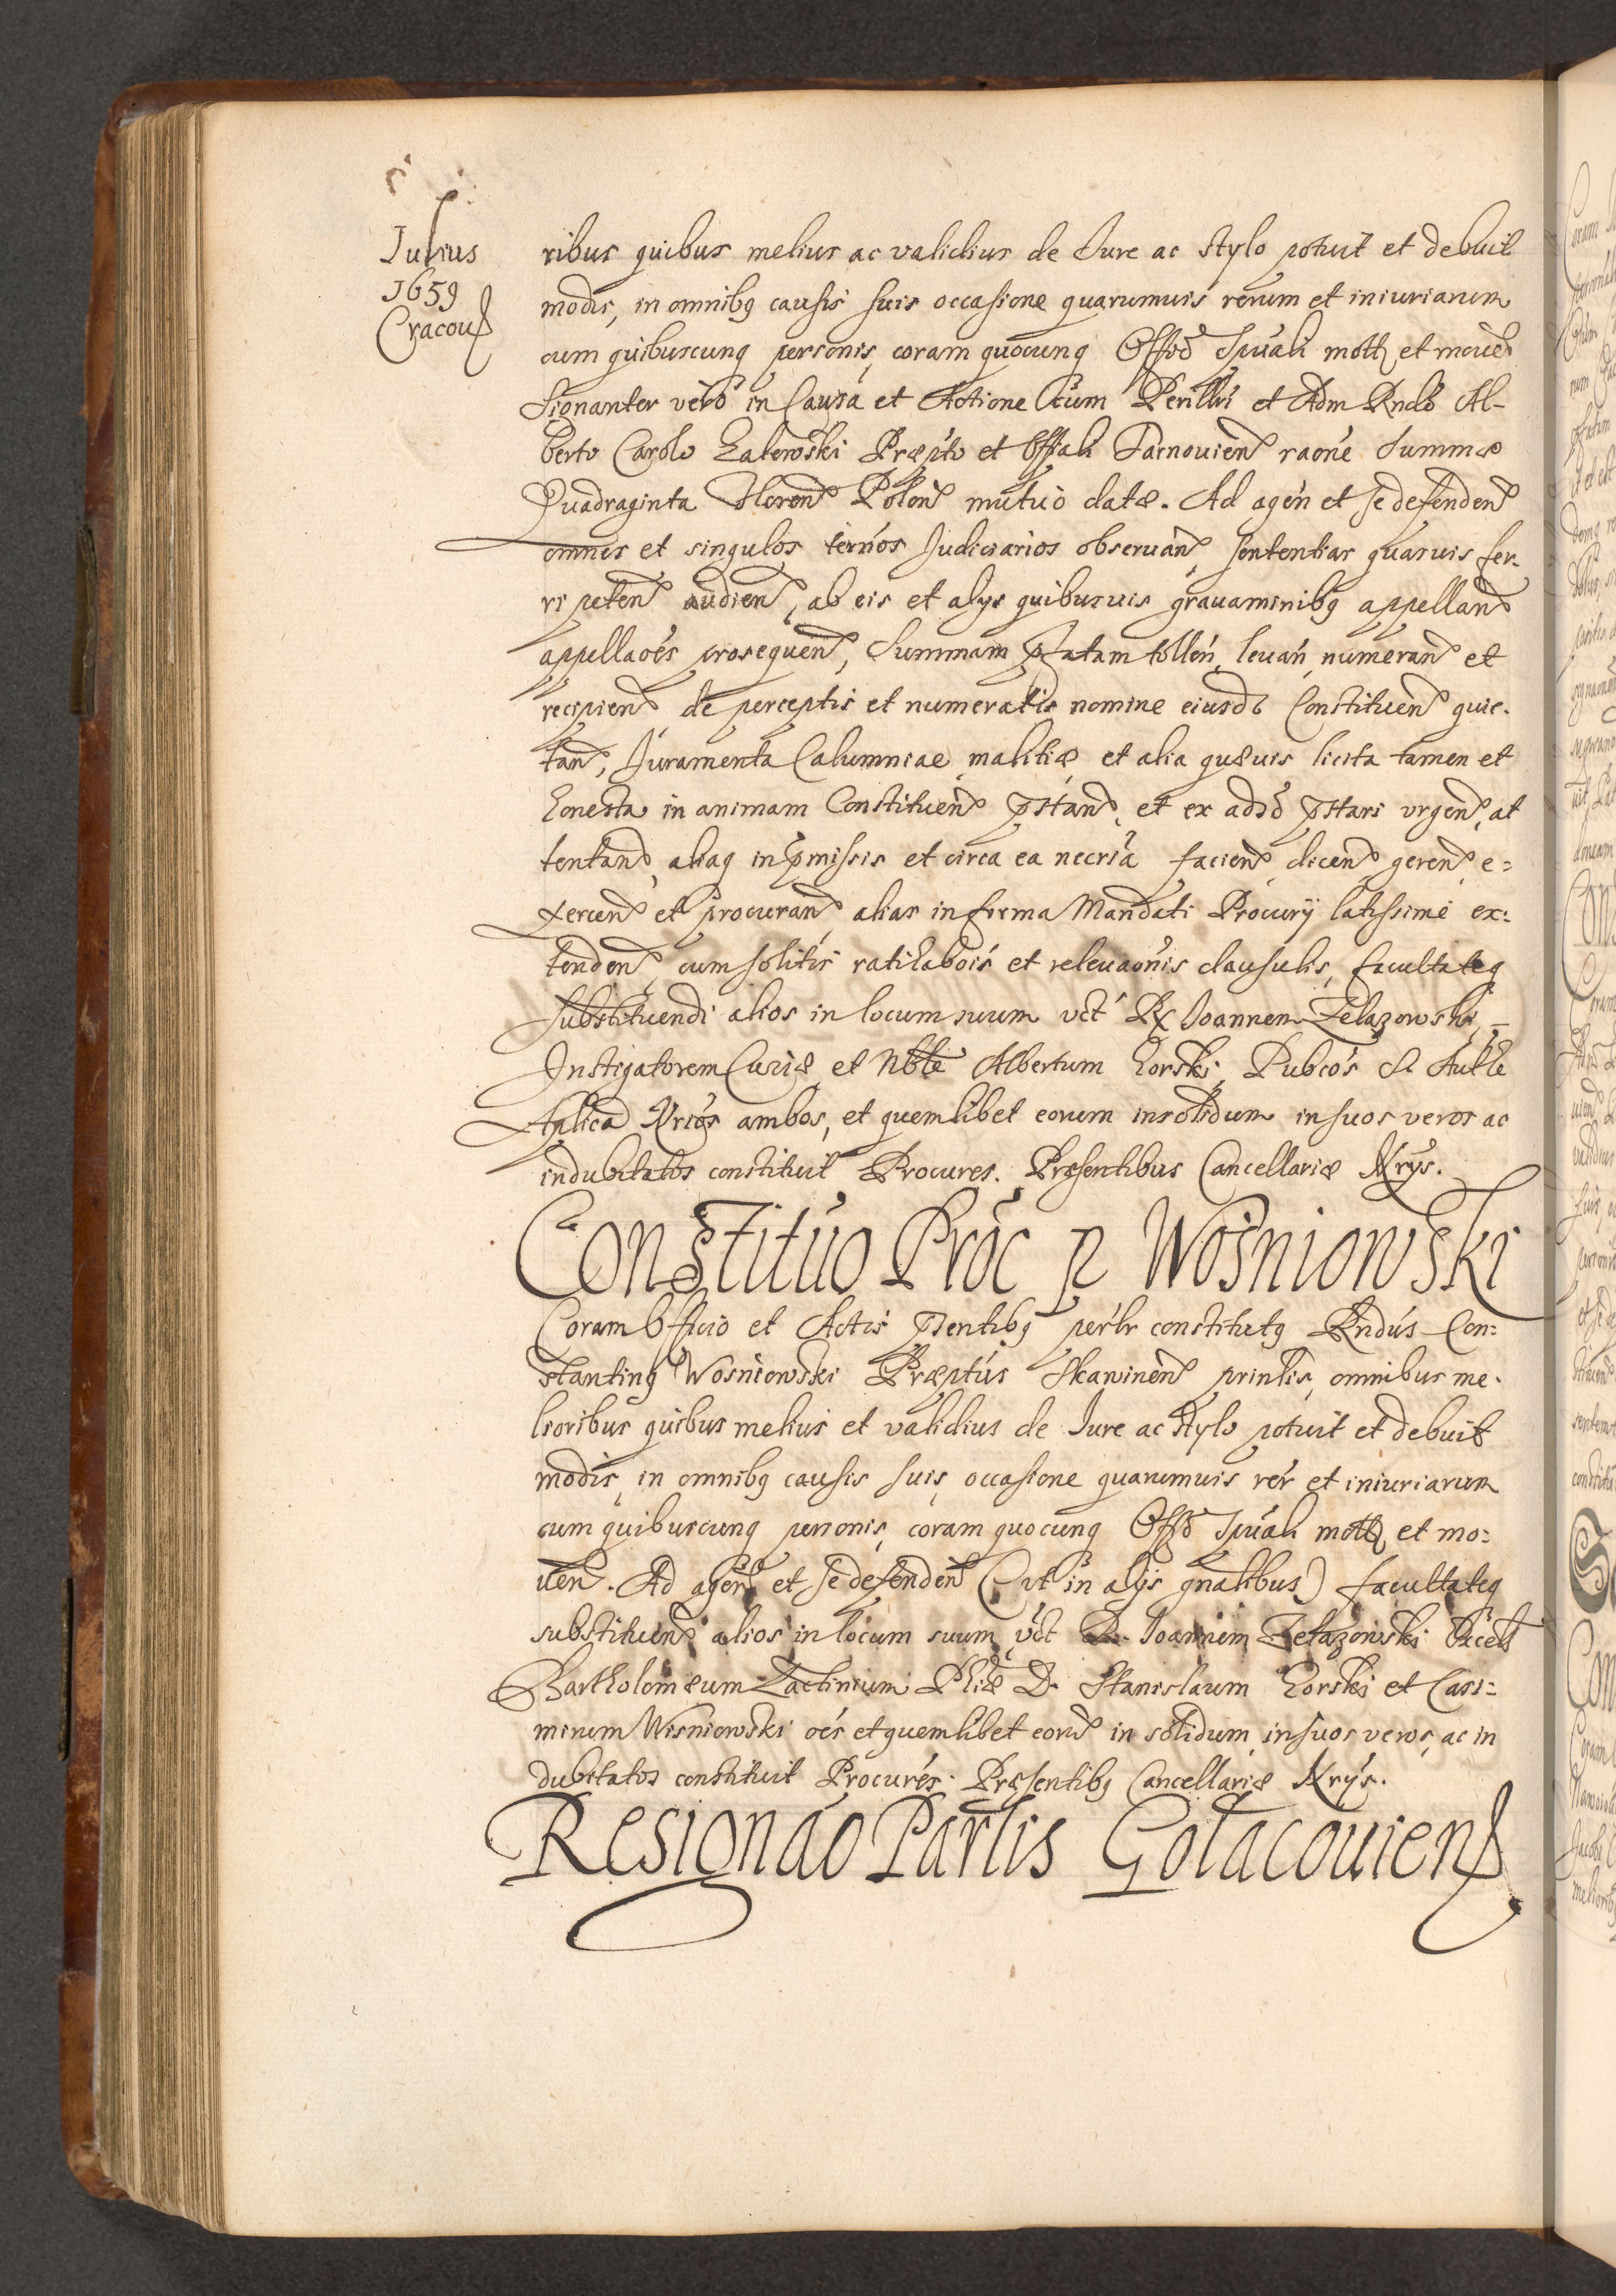 Iulius
1659
Cracou
ribus quibus melius ac validius de Iure ac stylo potuit et debuit
modis, in omnibq causis suis occasione quarumuis rerum et iniuriarum
cum quibuscunq personis, coram quocunq Offid Spuali mott et mouen
Signanter vero in Causa et Actione cum Perillri et Adm Rndo Al-
berto Carolo Zalewski Præpto et Offiali Tarnouien raone Summæ
Quadraginta Floren Polon mutuo datæ. Ad agen et se defenden
omnes et singulos ternos Judiciarios obseruan, sententias quasuis fer-
ri peten audien, ab eis et alys quibusuis grauaminibq appellan
appellaoes prosequen, Summam pfatam tollen, leuan, numeran et
recipien de perceptis et numeratis nomine eiusd Constituen quie-
tan, Juramenta Calumniae malitiæ et alia quæuis licita tamen et
honesta in animam Constituen pstan, et ex adso pstari vrgen, at
tentan, aliaq in pmissis et circa ea necria facien, dicen, geren, e=
xercen et procuran alias in forma Mandati Procurij latissime ex=
tenden, cum solitis ratihabois et releuaonis clausulis, facultateq
substituendi alios in locum suum vct Rx Ioannem Zelazowski,
Instigatorem Curiæ, et Nble Albertum Gorski, Publcos S Authe
Aplica Nrios ambos, et quemlibet eorum insolidum in suos veros ac
indubitatos constituit Procures. Præsentibus Cancellariæ Nrys.
Constituo Proc p Wosniowski
Coram Officio et Actis psentibq perlr constitutq Rndus Con=
stantinq Wosniowski Præptus Skawinen printis, omnibus me-
lioribus quibus melius et validius de Iure ac stylo potuit et debuit
modis, in omnibq causis suis, occasione quarumuis rer et iniuriarum
cum quibuscunq personis, coram quocunq Offo Spuali mott et mo=
uen. Ad agen et se defenden (vt in alijs gnalibus) facultateq
substituen alios in locum suum vct D. Ioannem Zelazowski
Bartholomæum Phiæ D. Stanislaum Gorski et Casi=
mirum Wisniowski oes et quemlibet eoru in solidum in suos veros, ac in
dubitatos constituit Procures. Præsentibq Cancellariæ Nrys.
Resignao Partis Golacouien